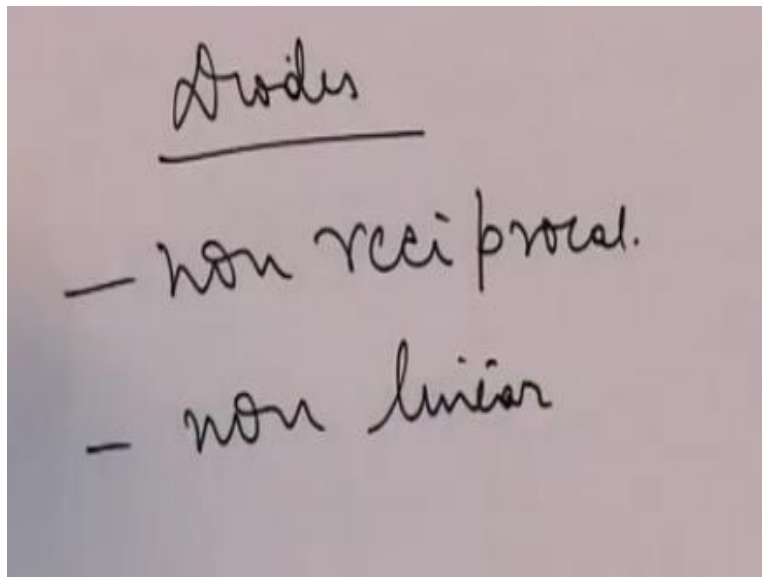 Diodes
- non reciprocal.
- non linear